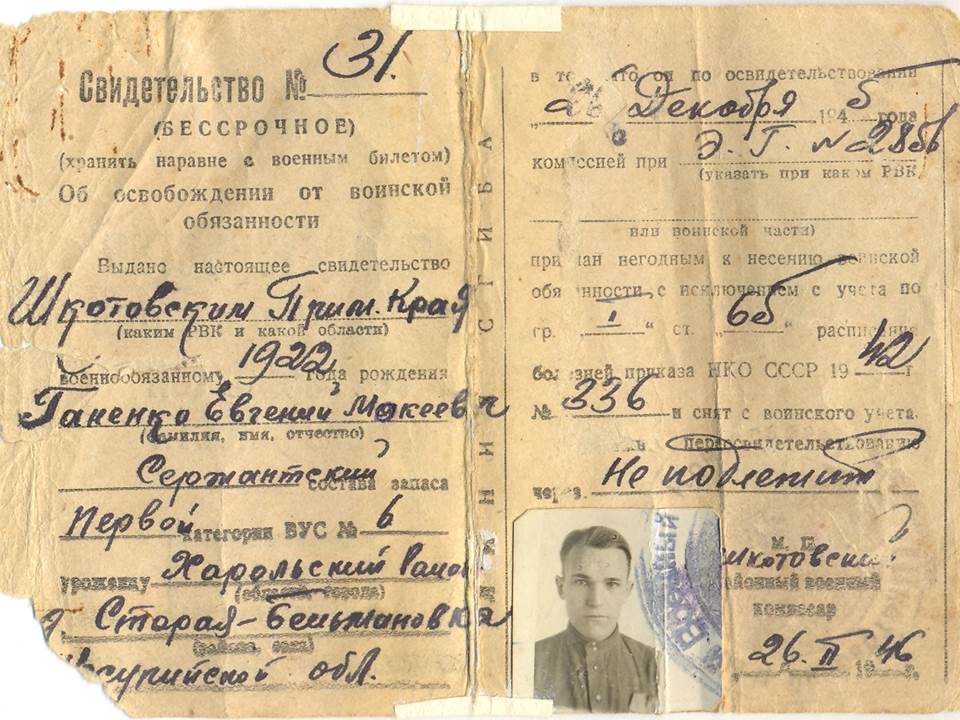 Свидетельство № 31.
(БЕССРОЧНОЕ)
(хранить наравне с военным билетом)
Об освобождении от воинской
обязанности
Выдано настоящее свидетельство
Шкотовским Прим. Края
(каким РВК и какой области)
военнообязанному 1922 года рождения
Ганенко Евгений Макеевич
(фамилия, имя, отчество)
Сержантский состава запаса
Первой категории ВУС № 6
уроженцу Харольский район
Старая-Бельмановка
Уссурийской обл.
в том, что он по освидетельствовании
„26 Декабря 1945 года
комиссией при Э. Г. № 2856
(указать при каком РВК
или воинской части)
признан негодным к несению воинской
обязанности с исключением с учета по
гр. „I“ ст. „6б“ расписания
болезней приказа НКО СССР 1942 г
№ 336 и снят с воинского учета.
переосвидетельствованию
через Не подлежит
М. П.
Шкотовский
районный военный
комиссар
26. II 1946 г.